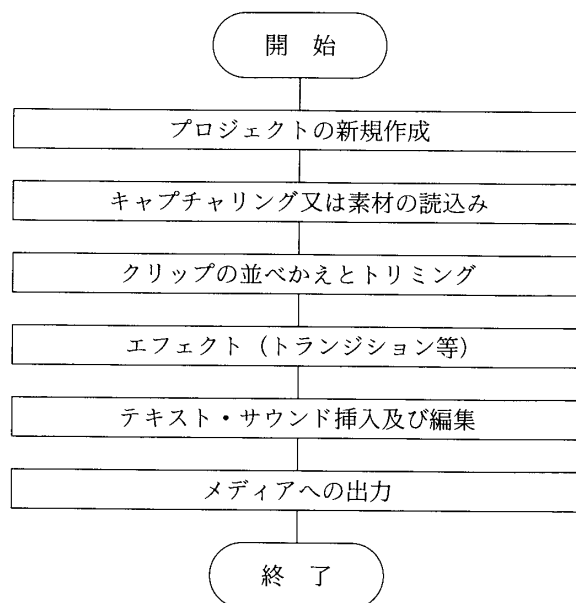 開 始
プロジェクトの新規作成
キャプチャリング又は素材の読込み
クリップの並べかえとトリミング
エフェクト（トランジション等）
テキスト・サウンド挿入及び編集
メディアへの出力
終 了